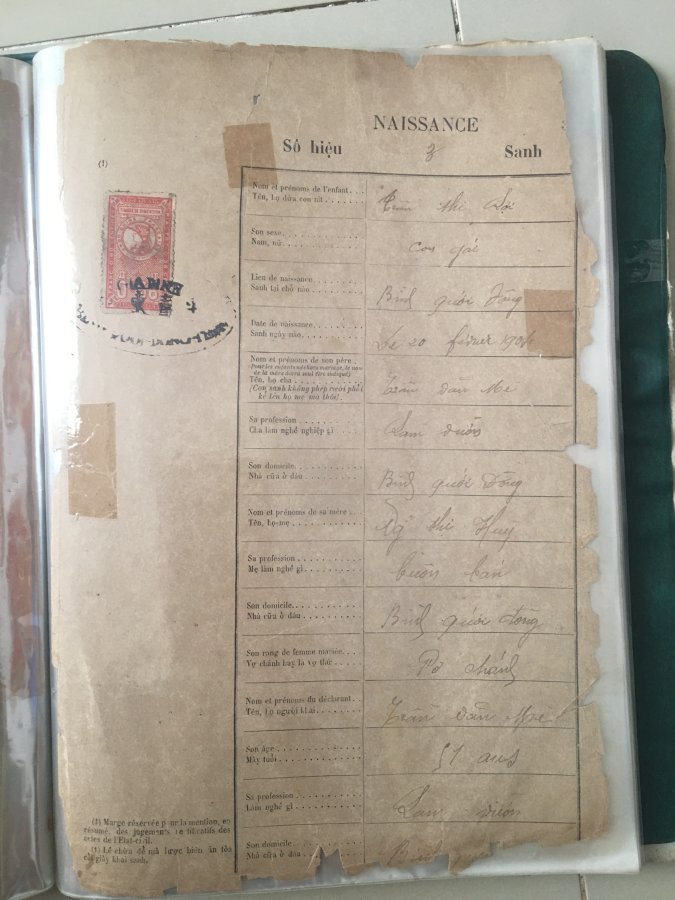 NAISSANCE
Số hiệu 3 Sanh
(1)
Nom et prénoms de l'enfant...
Tên, họ đứa con nít
Trần thị
Son sexe
Nam, nữ
Con gái
Lieu de naissance
Sanh tại chỗ nào
Bình quới Đông
Date de naissance
Sanh ngày nào
Le 20 février
Nom et prénoms de son père
(Pour les enfants nés hors mariage, le nom
de la mère devra seul être indiqué)
Tên, họ cha
(Con sanh không phép cưới phải
kê tên họ mẹ mà thôi)
Trần văn Me
Sa profession
Cha làm nghề nghiệp gì
Làm vườn
Son domicile
Nhà cửa ở đâu
Bình quới Đông
Nom et prénoms de sa mère
Tên, họ mẹ
thị Huy
Sa profession
Mẹ làm nghề gì
buôn bán
Son domicile
Nhà cửa ở đâu
Bình quới đông
Son rang de femme mariée
Vợ chánh hay là vợ thứ
Vợ chánh
Nom et prénoms du déclarant
Tên, họ người khai
Trần văn Me
Son âge
Mấy tuổi
51 ans
Sa profession
Làm nghề gì
Làm vườn
Son domicile
Nhà cửa ở đâu
Bình
(1) Marge réservée pour la mention, en
résumé, des jugements rectificatifs des
actes de l'État-civil.
(1) Lề chừa để mà lược biên án tòa
cải giấy khai sanh.